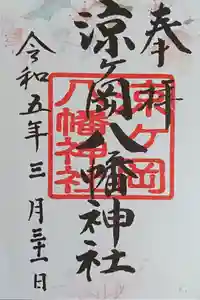 奉拝
涼ヶ岡八幡神社
涼ヶ岡
八幡神社
令和五年三月三十一日